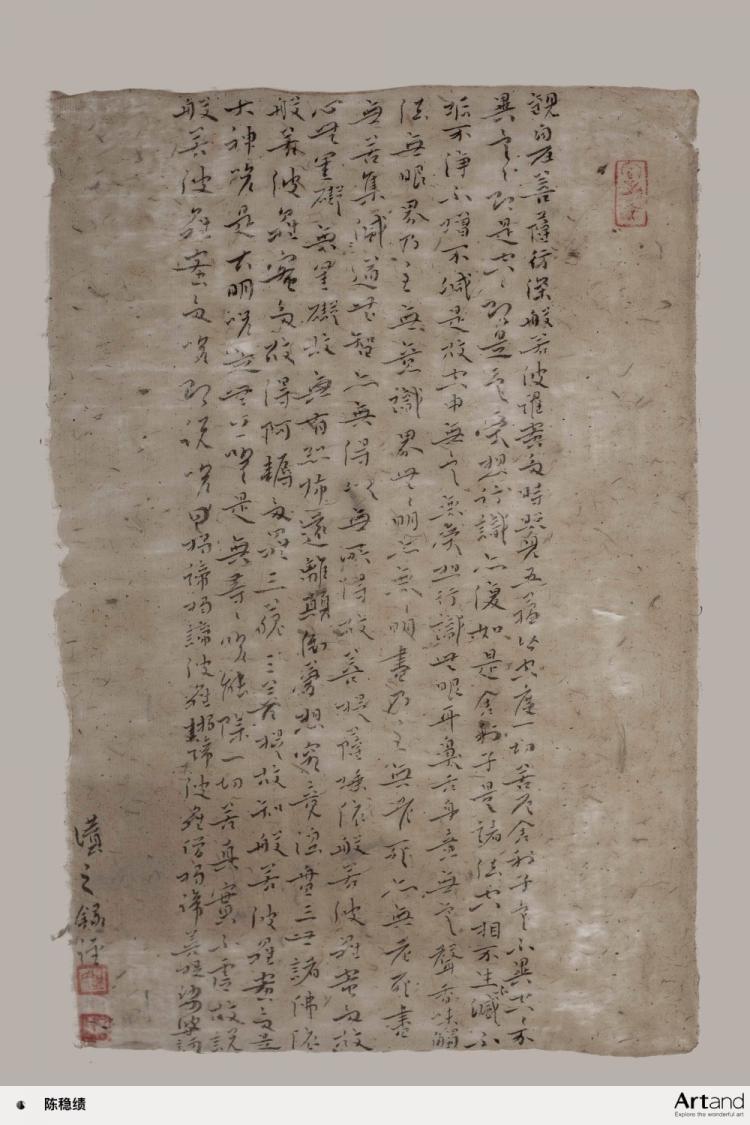 觀自在菩薩行深般若波羅蜜多時照見五蘊皆空度一切苦厄舍利子色不異空々不
異色々即是空々即是色受想行識亦復如是舍利子是諸法空相不生滅不
垢不淨不增不減是故空中無色無受想行識無眼耳鼻舌身意無色聲香味觸
法無眼界乃至無意識界無々明亦無々明盡乃至無老死亦無老死盡
無苦集滅道無智亦無得以無所得故菩提薩埵依般若波羅蜜多故
心無罣礙無罣礙故無有恐怖遠離顛倒夢想究竟涅槃三世諸佛依
般若波羅蜜多故得阿耨多羅三藐三菩提故知般若波羅蜜多是
大神咒是大明咒是無上咒是無等々咒能除一切苦真實不虛故說
般若波羅蜜多咒即說咒曰揭諦揭諦波羅揭諦波羅僧揭諦菩提娑婆訶
之錄經
陈稳绩
Artand
Explore the wonderful art